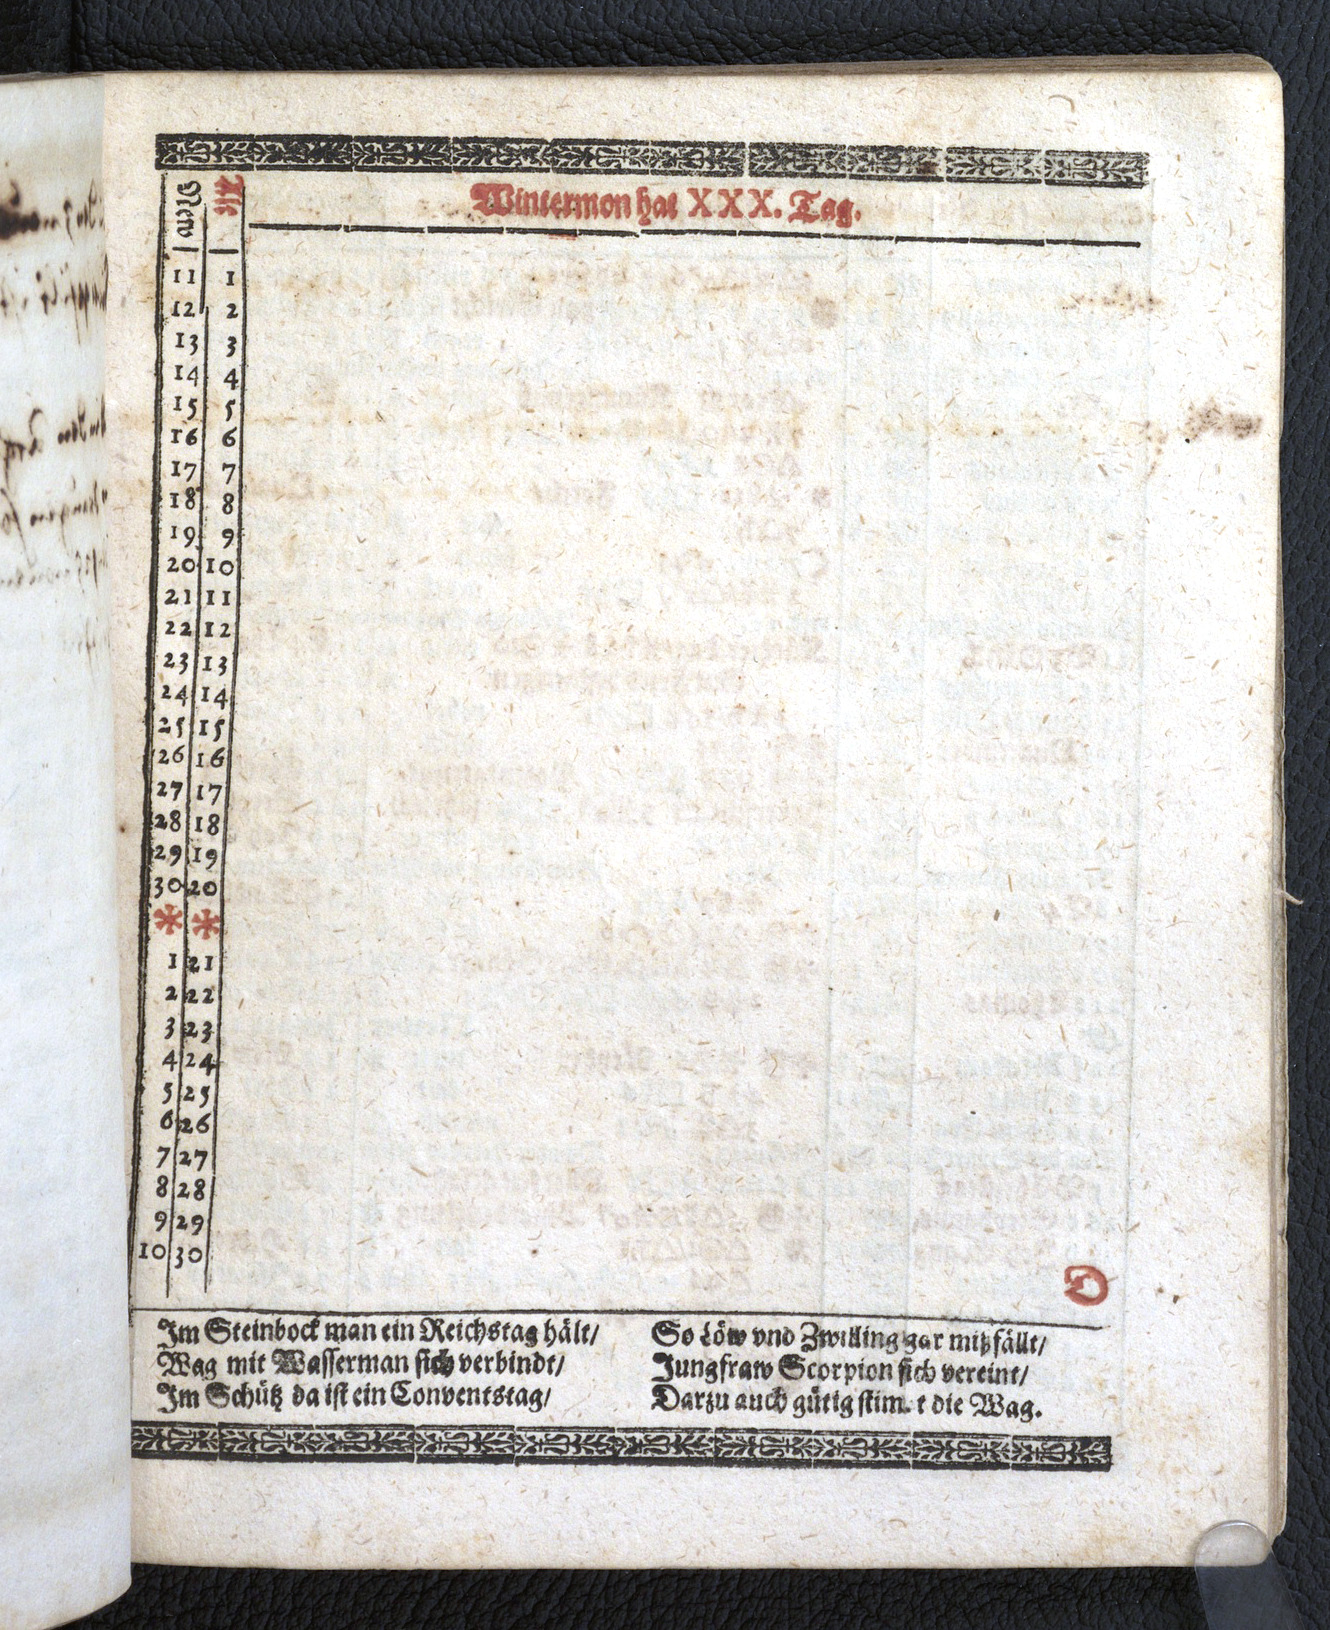 New Alt
Wintermon hat XXX. Tag.
11 1
12 2
13 3
14 4
15 5
16 6
17 7
18 8
19 9
20 10
21 11
22 12
23 13
24 14
25 15
26 16
27 17
28 18
29 19
30 20
* *
1 21
2 22
3 23
4 24
5 25
6 26
7 27
8 28
9 29
10 30
D
Im Steinbock man ein Reichstag hält/
Wag mit Wasserman sich verbindt/
Im Schütz da ist ein Conventstag/
So Löw vnd Zwilling gar mißfällt/
Jungfraw Scorpion sich vereint/
Darzu auch gütig stim. t die Wag.